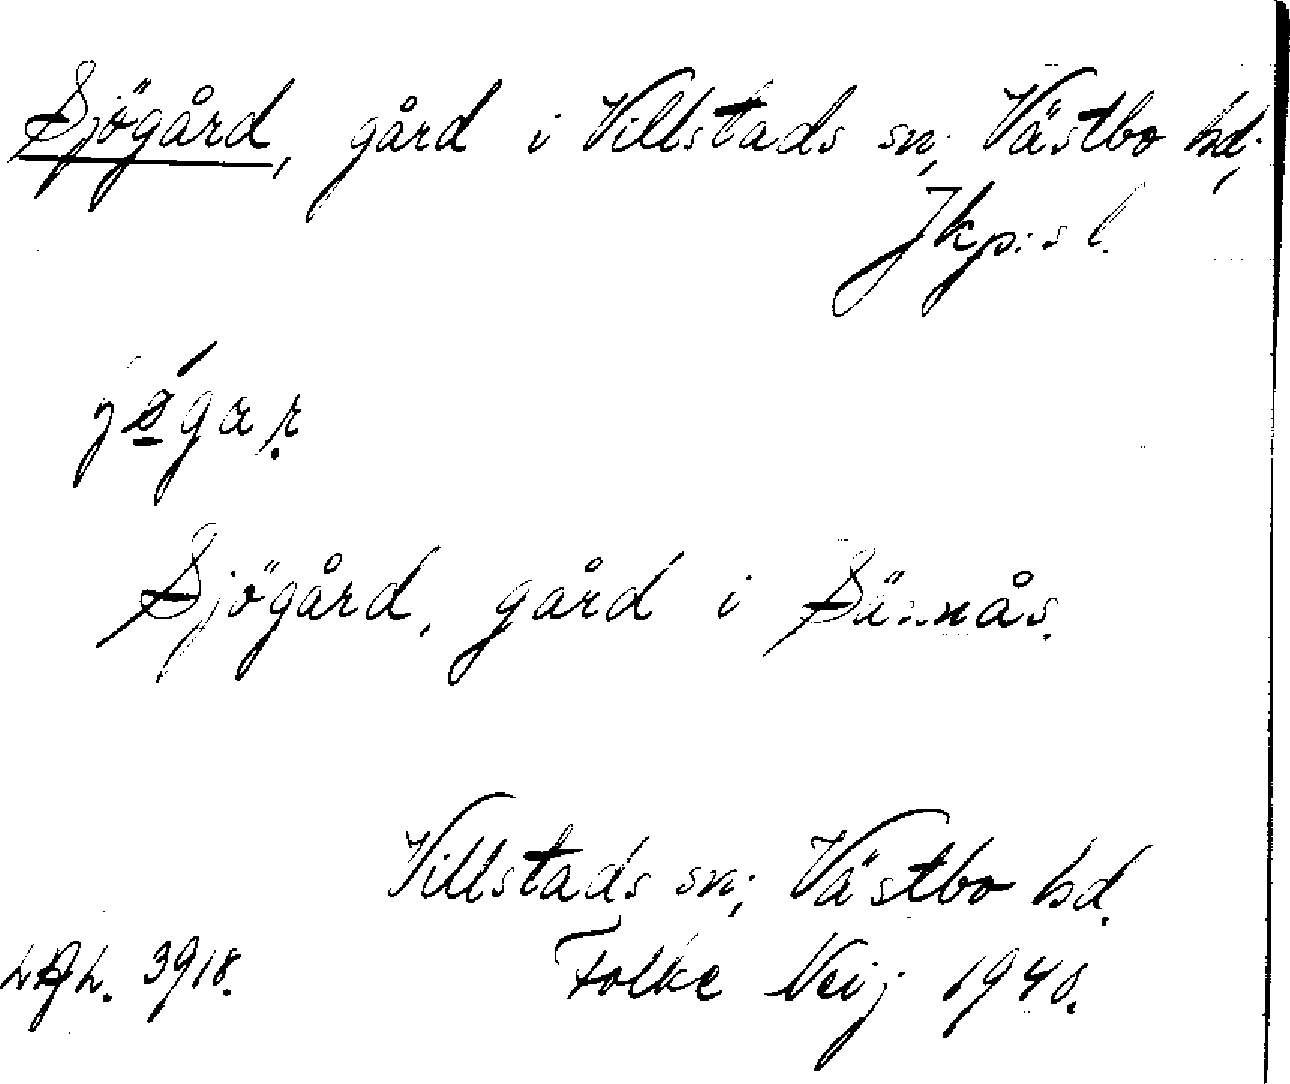 Sjögård, gård i Villstads sn; Västbo hd;
Jkp:s l.
Sjögård, gård i Sännås.
Villstads sn; Västbo hd.
3918. Folke Neij 1940.